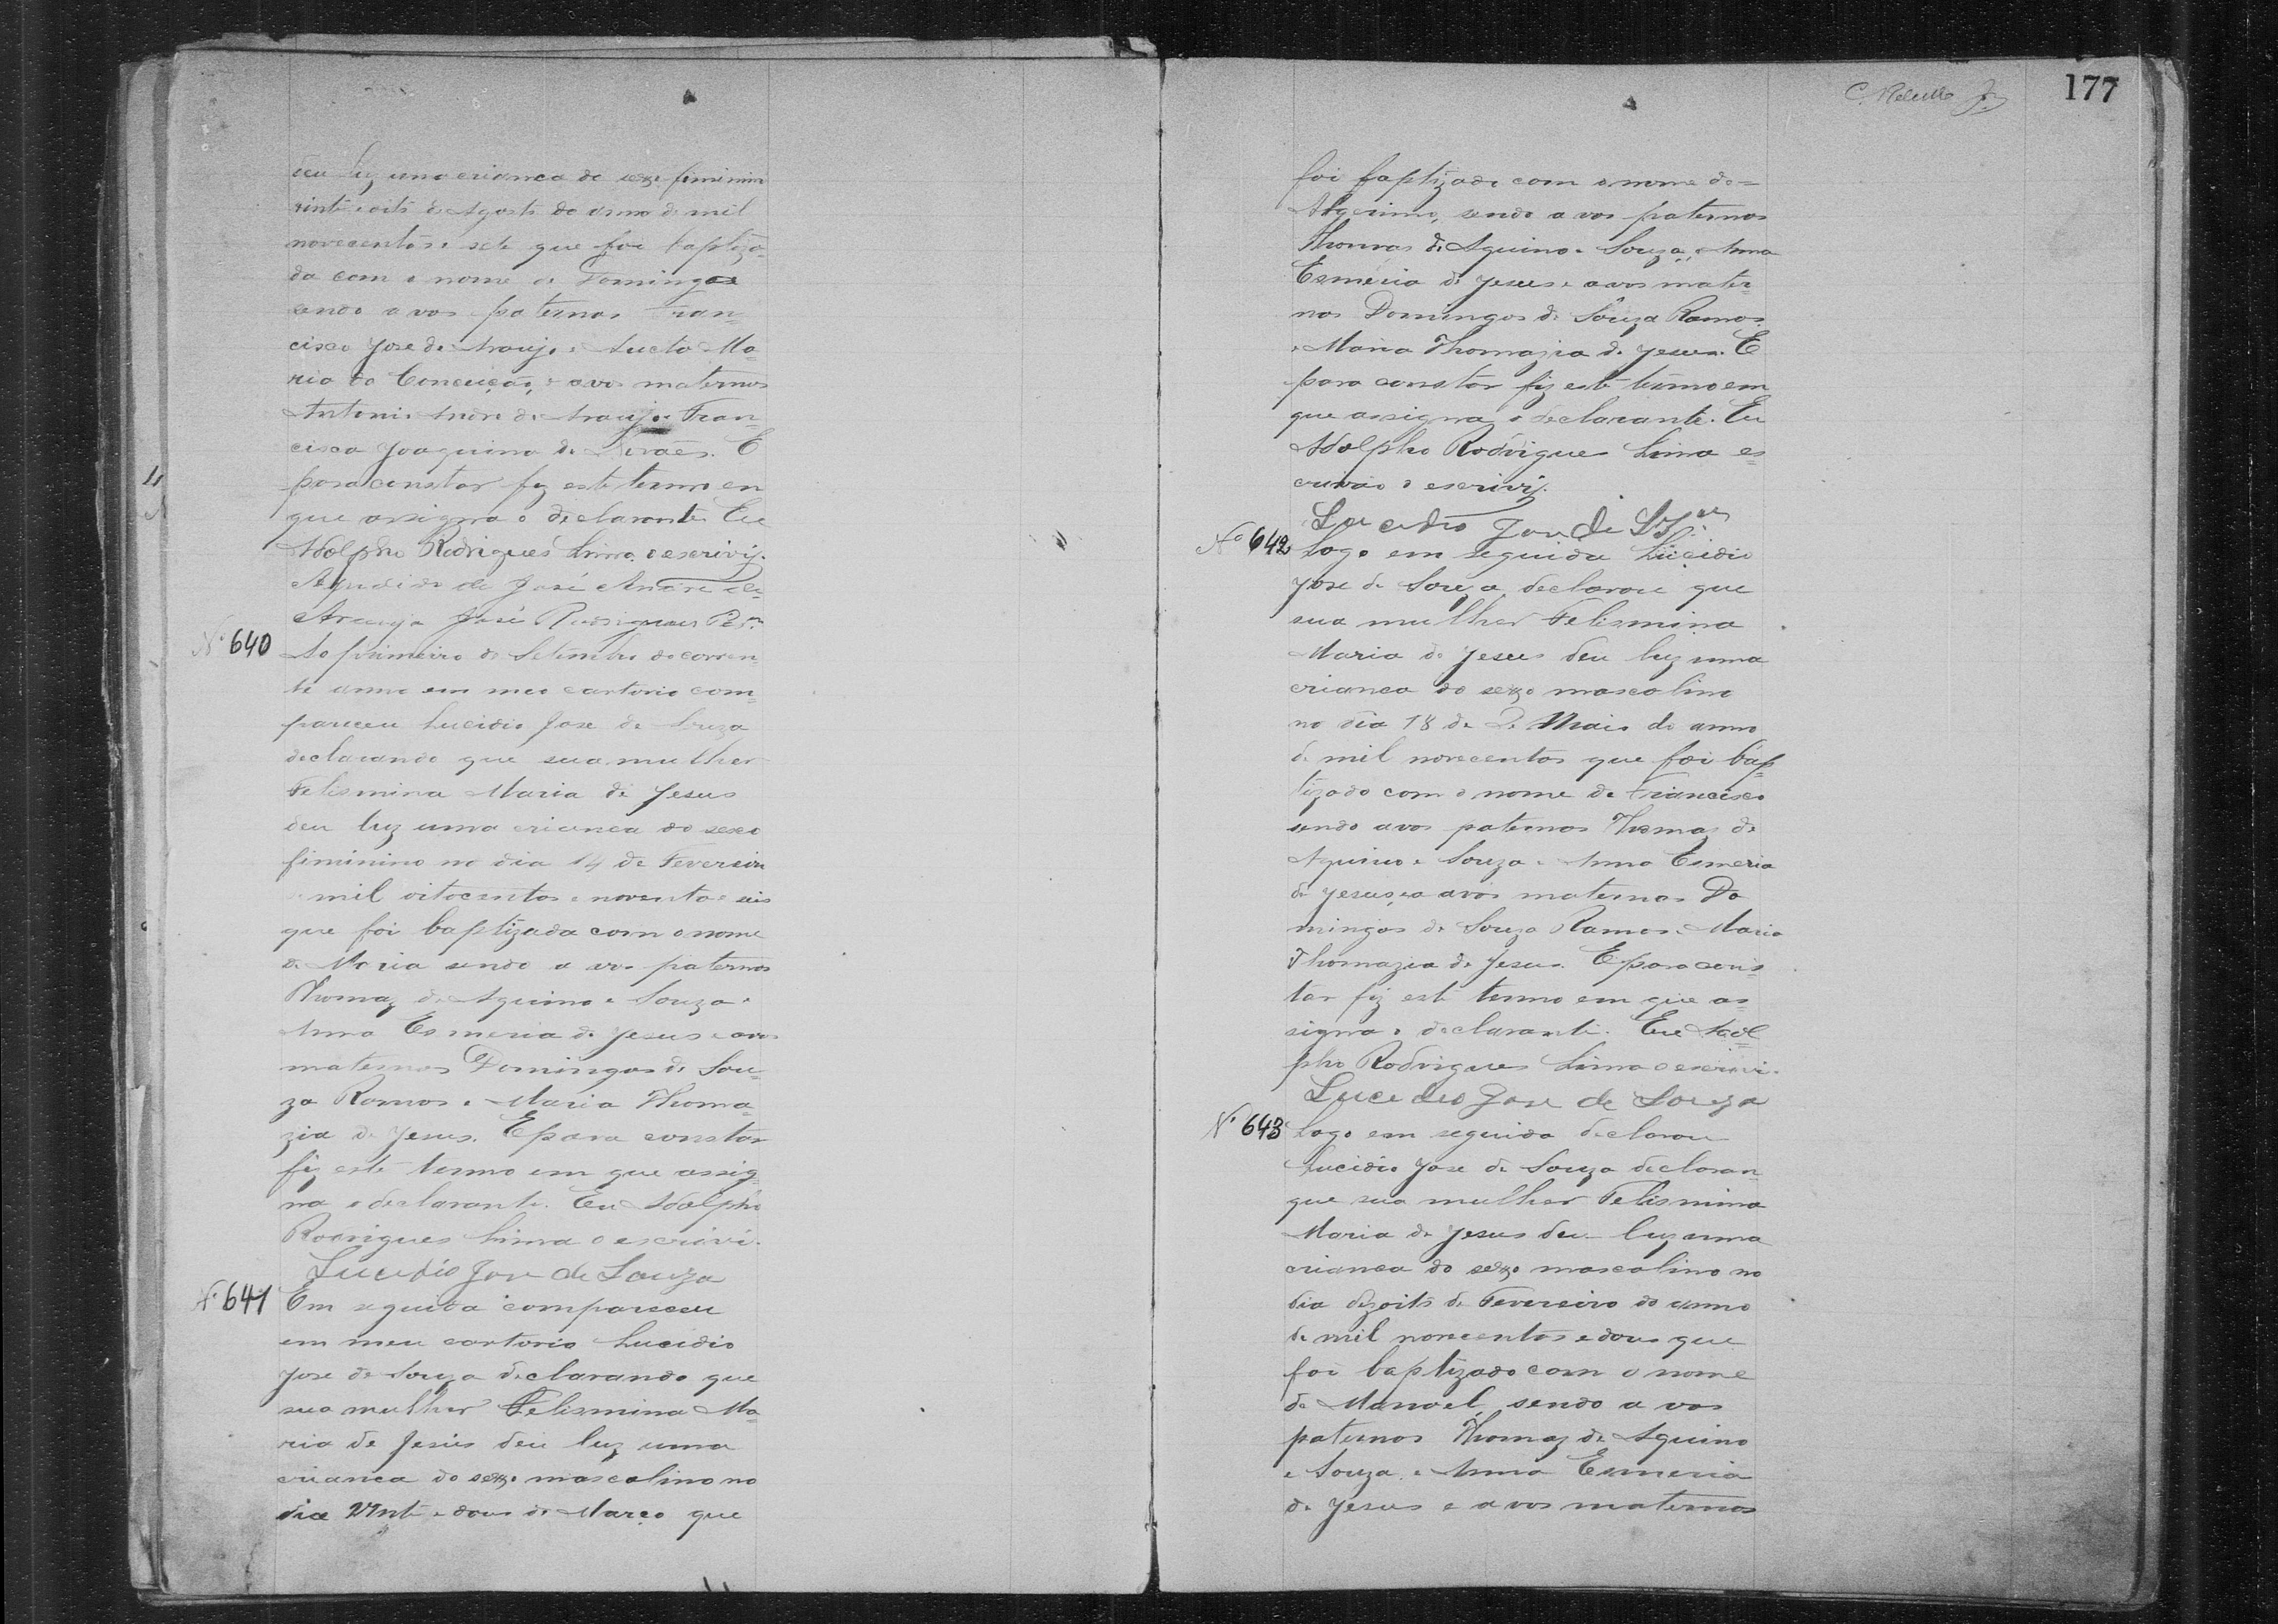 deu luz uma crianca do sexo feminin
vinte e oito de Agosto do anno de mil
novecentos e sete que foi baptiza-
da com o nome de Domingas
sendo avos paternos Fran-
cisco Jose de Araujo e Maria
ria da Conceição, e avos maternos
Antonio Andre de Araujo e Fran-
cisca Joaquina de E
para constar fiz este termo em
que assigna o declarante. Eu
Adolpho Rodrigues Lima o escrivij.
de José André de
Araujo José Rodrigues Per.ª
Nº 640 Ao primeiro de Setembro do corren-
te anno em meo cartorio com-
pareceu Lucidio Jose de Souza
declarando que sua mulher
Felismina Maria de Jesus
deu luz uma crianca do sexo
feminino no dia 14 de Fevereiro
mil oitocentos e noventa e seis
que foi baptizada com o nome
de Maria sendo a vos paternos
Thomaz de Aquino e Souza e
Anna Esmeria de Jesus e avos
maternos Domingos de Sou-
za Ramos e Maria Thoma-
zia de Jesus. E para constar
fiz este termo em que assig-
na o declarante. Eu Adolpho
Rodrigues Lima o escrivi.
Lucidio Jose de Souza
Nº 641 Em seguida compareceu
em meu cartorio Lucidio
Jose de Souza declarando que
sua mulher Felismina Ma-
ria de Jesus deu luz uma
crianca do sexo mascolino no
dia vinte e dous de Março que
C. Jr
177
foi baptizado com o nome de=
sendo a vos paternos
Thomas de Aquino e Souza, e Anna
Esmeria de Jesus e avos mater-
nos Domingos de Souza Ramos
e Maria Thomazia de Jesus. E
para constar fiz este termo em
que assigna o declarante. Eu
Adolpho Rodrigues Lima es-
crivão o escrivij.
Lucidio Jose de
Nº 642 Logo em seguida Lucidio
Jose de Souza declarou que
sua mulher Felismina
Maria de Jesus deu luz uma
crianca do sexo mascolino
no dia 18 de Maio do anno
de mil novecentos que foi bap-
tizado com o nome de Francisco
sendo avos paternos Thomaz de
Aquino e Souza e Anna Esmeria
de Jesus, e a avos maternos Do
mingos de Souza Ramos e Maria
Thomazia de Jesus. E para cons-
tar fiz este termo em que as-
signa o declarante. Eu Adol-
pho Rodrigues Lima o escrivi.
Lucidio Jose de Souza
Nº 643 Logo em seguida declarou
Lucidio Jose de Souza declaran-
que sua mulher Felismina
Maria de Jesus deu luz uma
crianca do sexo mascolino no
dia dizoito de Fevereiro do anno
de mil novecentos e dous que
foi baptizado com o nome
de Manoel, sendo a vos
paternos Thomaz de Aquino
e Souza, e Anna Esmeria
de Jesus e a vos maternos